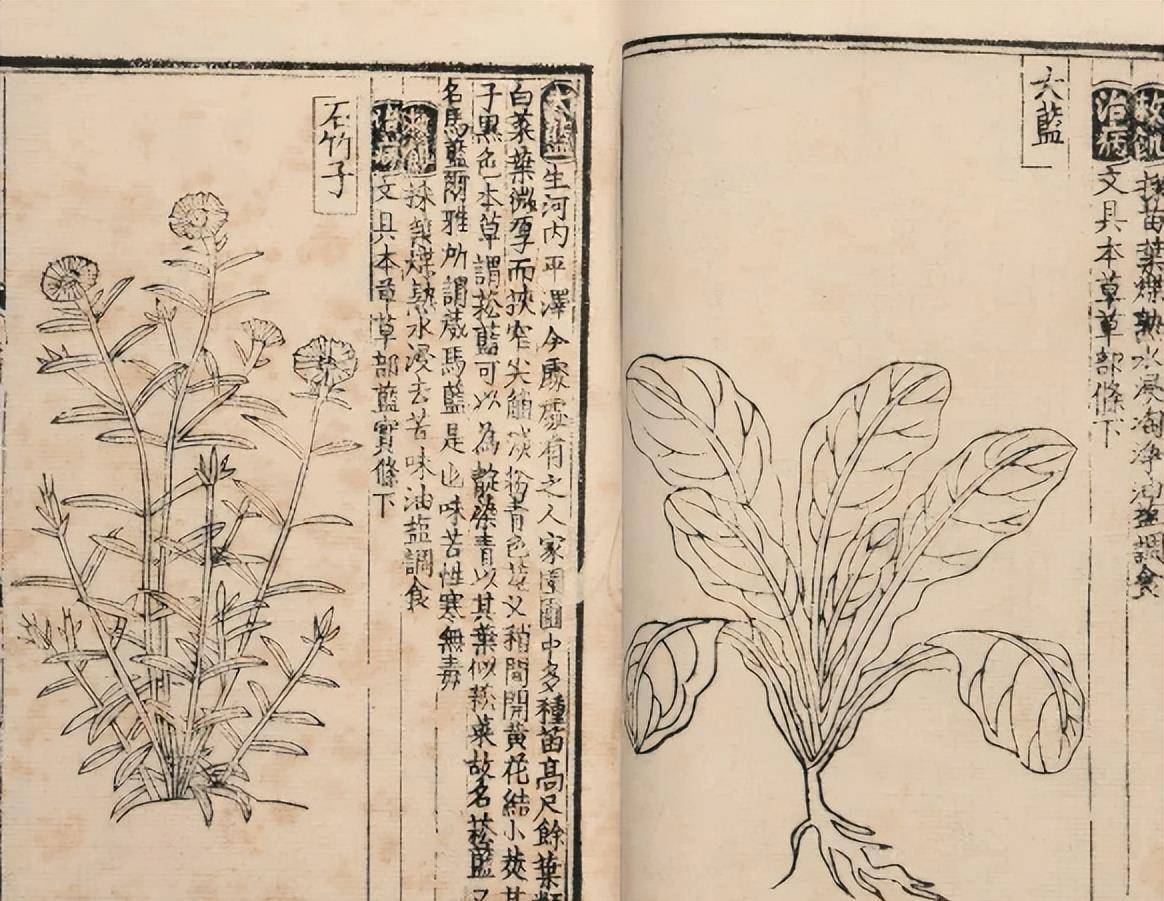 救飢採苗葉煠熟水浸淘淨油塩調食
治病文具本草草部條下
大藍
大藍生河內平澤今處處有之人家園圃中多種苗高尺餘葉類
白菜葉微厚而狹窄尖䚡淡粉青色莖叉稍間開黃花結小莢其
子黑色本草謂菘藍可以為靛染青以其葉似菘菜故名菘藍又
名馬藍爾雅所謂葴馬藍是也味苦性寒無毒
救飢採葉煠熟水浸去苦味油塩調食
治病文具本草草部藍實條下
石竹子